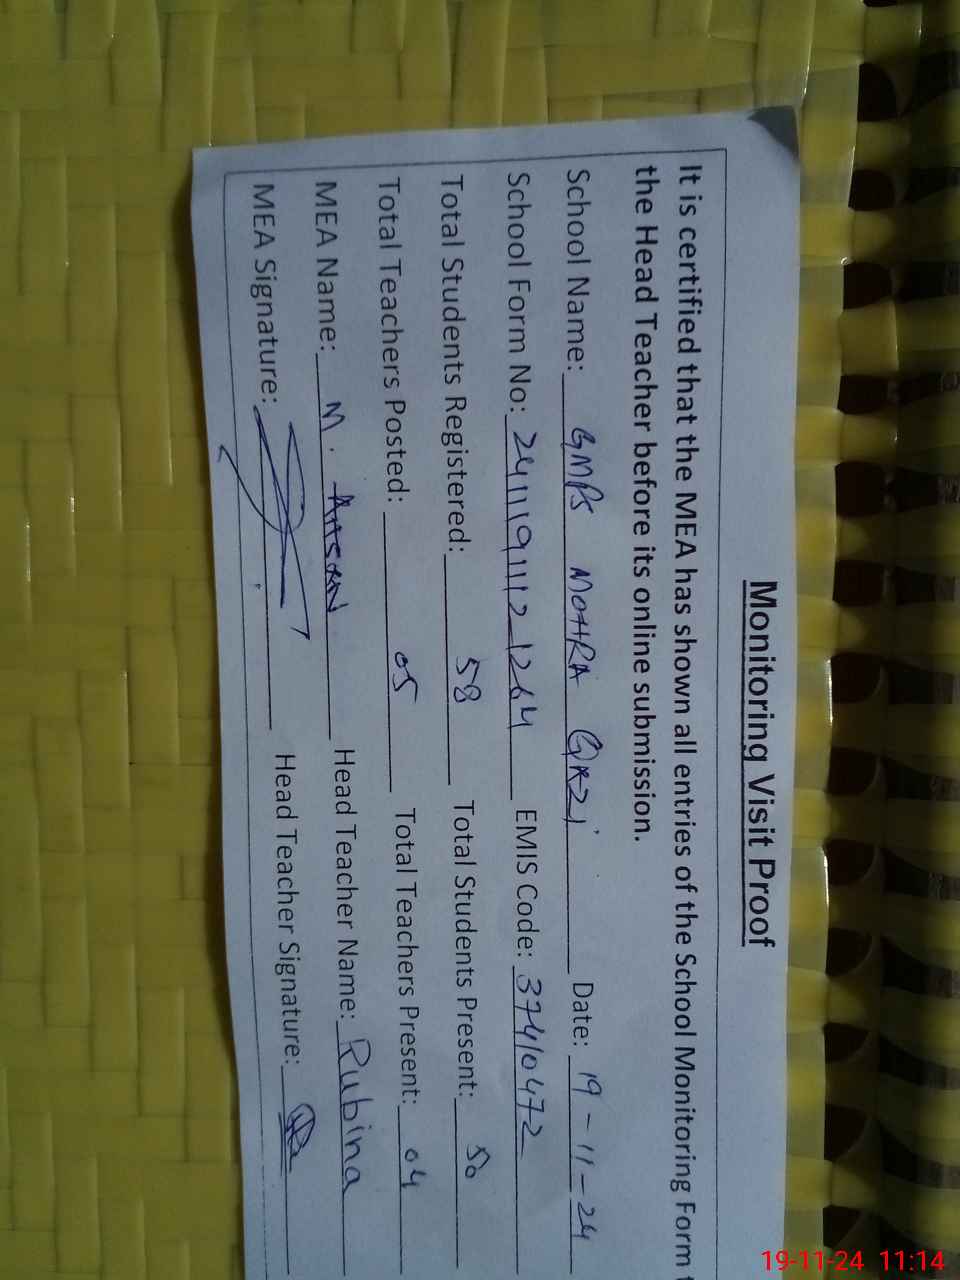 Monitoring Visit Proof
It is certified that the MEA has shown all entries of the School Monitoring Form
the Head Teacher before its online submission.
School Name: GMPS MOHRA Date: 19-11-24
School Form No: EMIS Code: 37410472
Total Students Registered: 58 Total Students Present: 50
Total Teachers Posted: 05 Total Teachers Present: 04
MEA Name: M. Head Teacher Name: Rubina
MEA Signature: Head Teacher Signature:
19-11-24 11:14